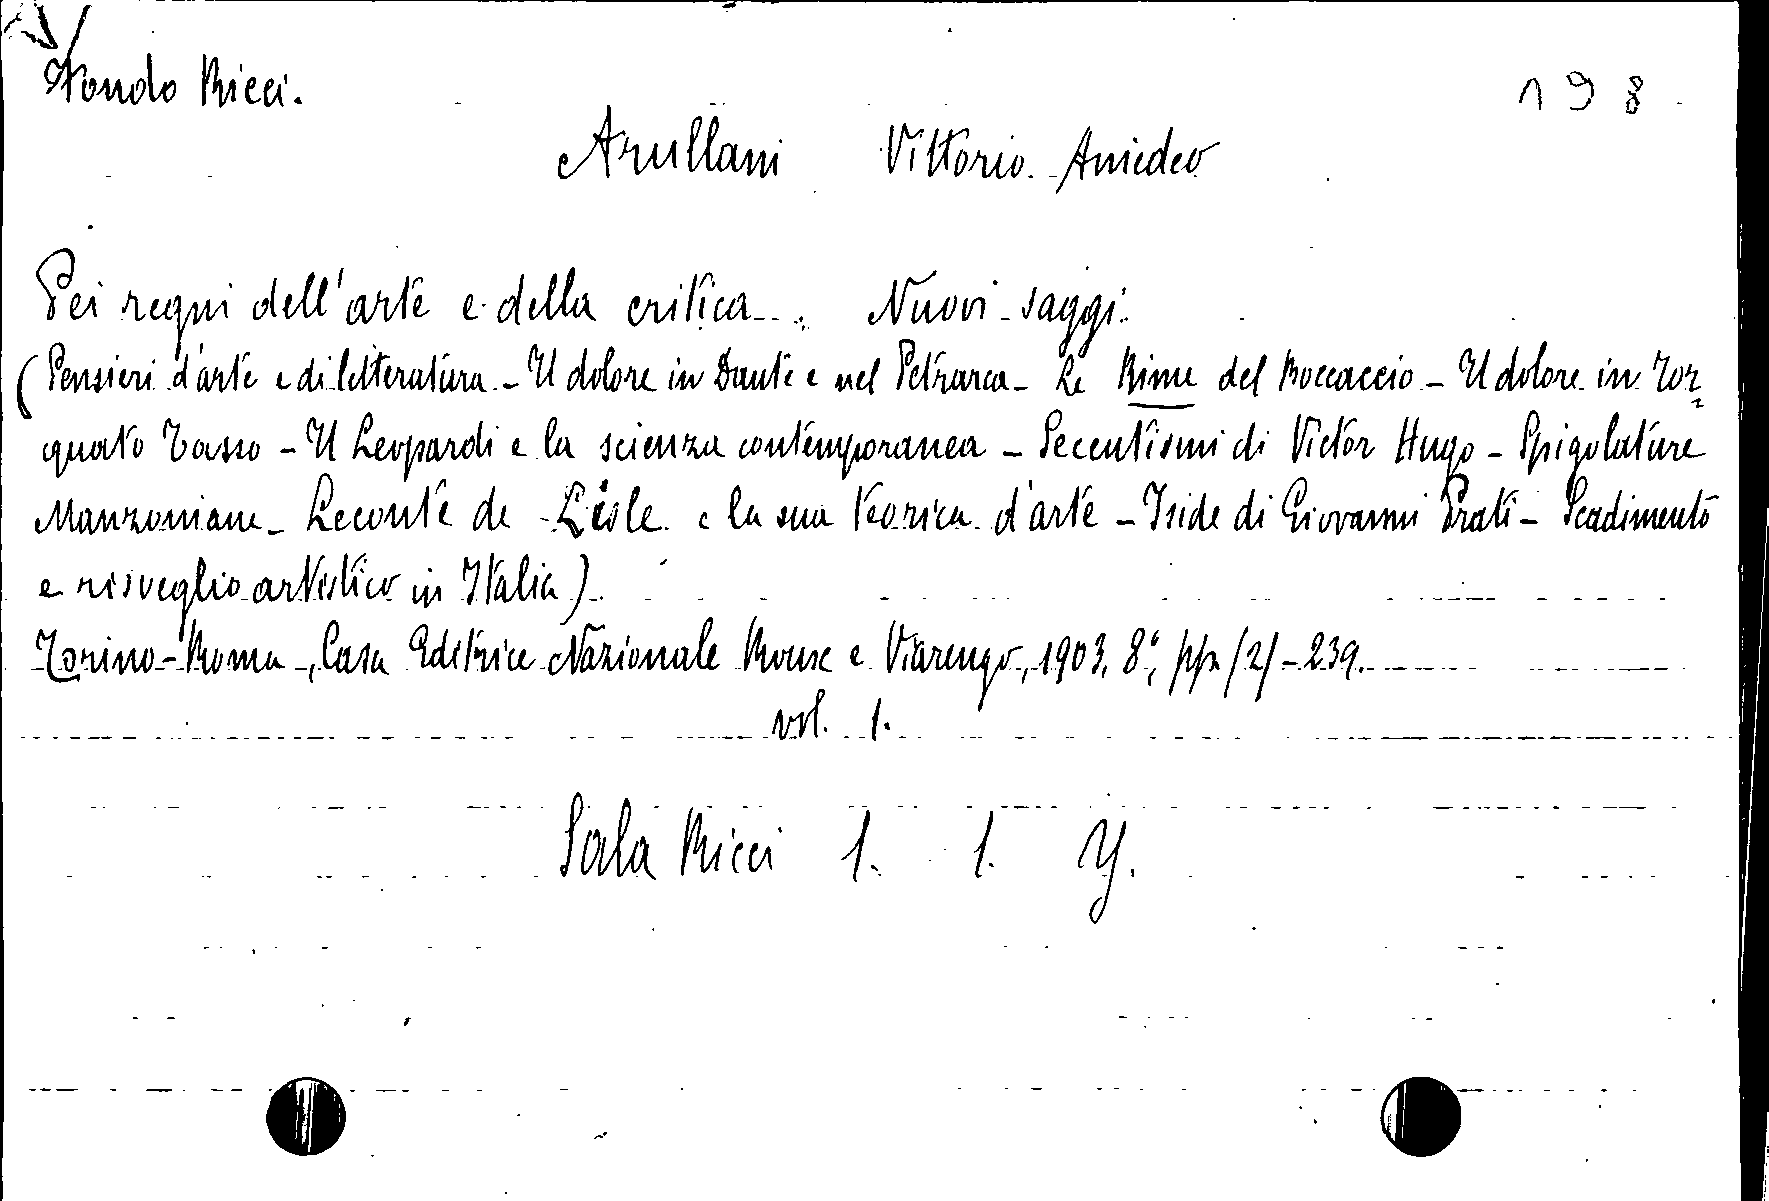 Fondo Ricci.
198
Arullani Vittorio Amedeo
Pei regni dell'arte e della critica. Nuovi saggi.
(Pensieri d'arte e di letteratura - Il dolore in Dante e nel Petrarca - Le Rime del Boccaccio - Il dolore in Tor=
quato Tasso - Il Leopardi e la scienza contemporanea - Secentismi di Victor Hugo - Spigolature
Manzoniane - Leconte de Lisle e la sua teorica d'arte - Iside di Giovanni Prati - Scadimento
e risveglio artistico in Italia)
Torino-Roma, Casa Editrice Nazionale Roux e Viarengo, 1903, 8°, pp. /2/-239.
vol. 1.
Sala Ricci 1. 1. Y.